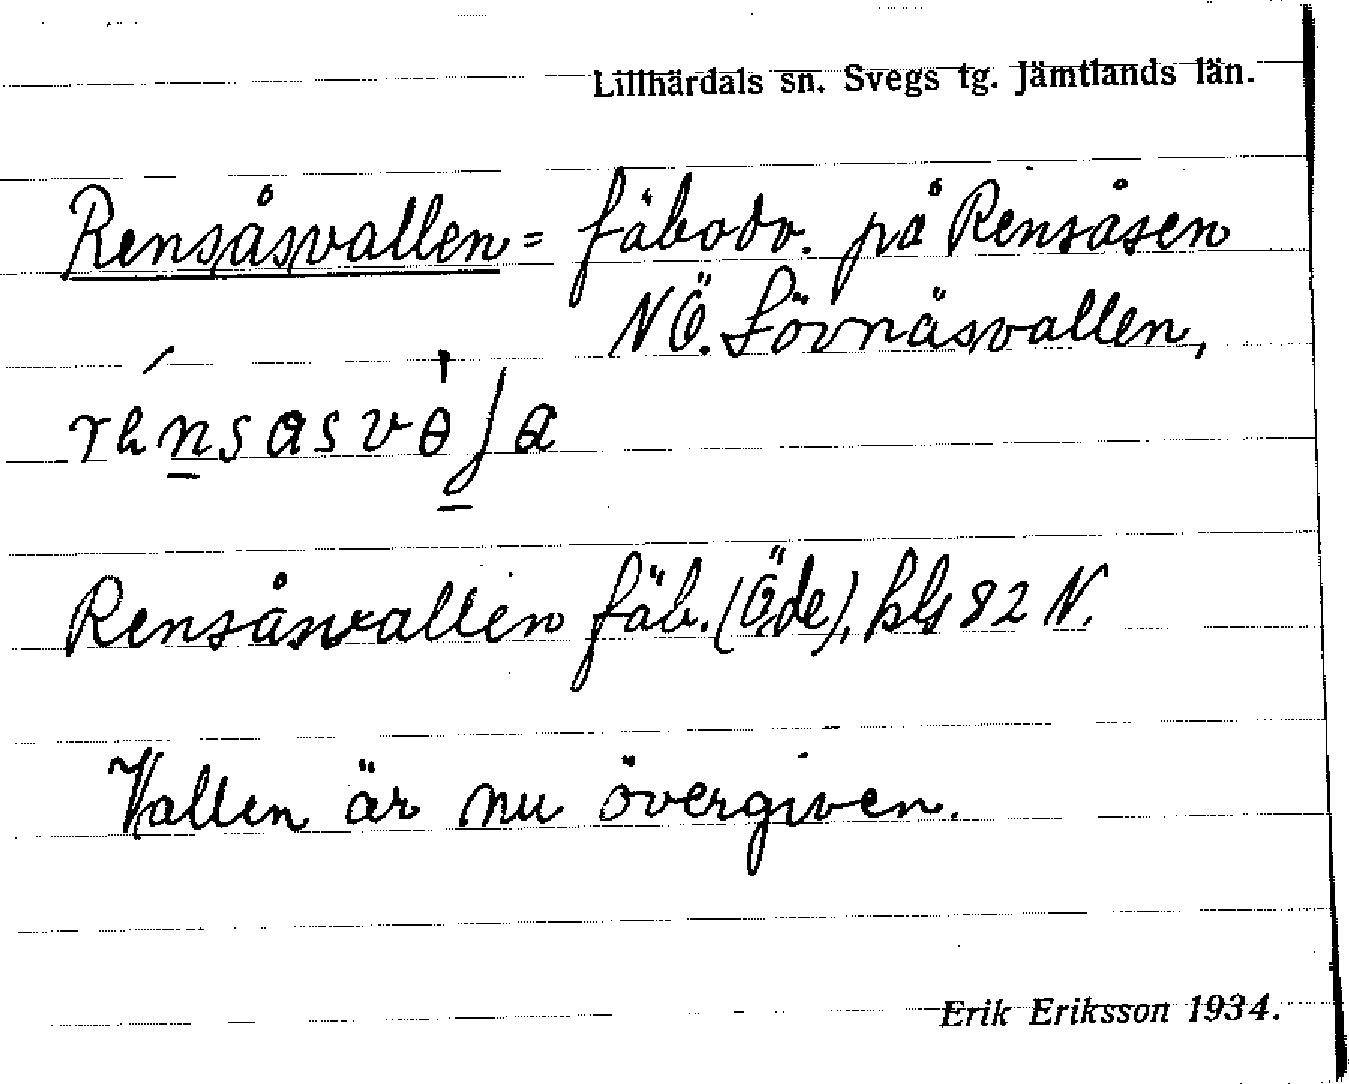 Lillhärdals sn. Svegs tg. Jämtlands län.
Rensåsvallen = fäbodv. på Rensåsen
NÖ. Lövnäsvallen,
Rensåsvallen fäb. (Öde), bls 82 N.
Vallen är nu övergiven.
Erik Eriksson 1934.